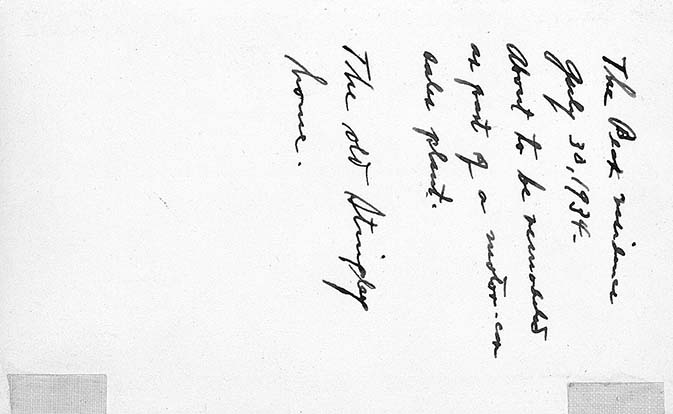 The Best residence
July 30, 1934-
About to be remodeled
as part of a motor-car
sales plant.
The old Stingley
home.